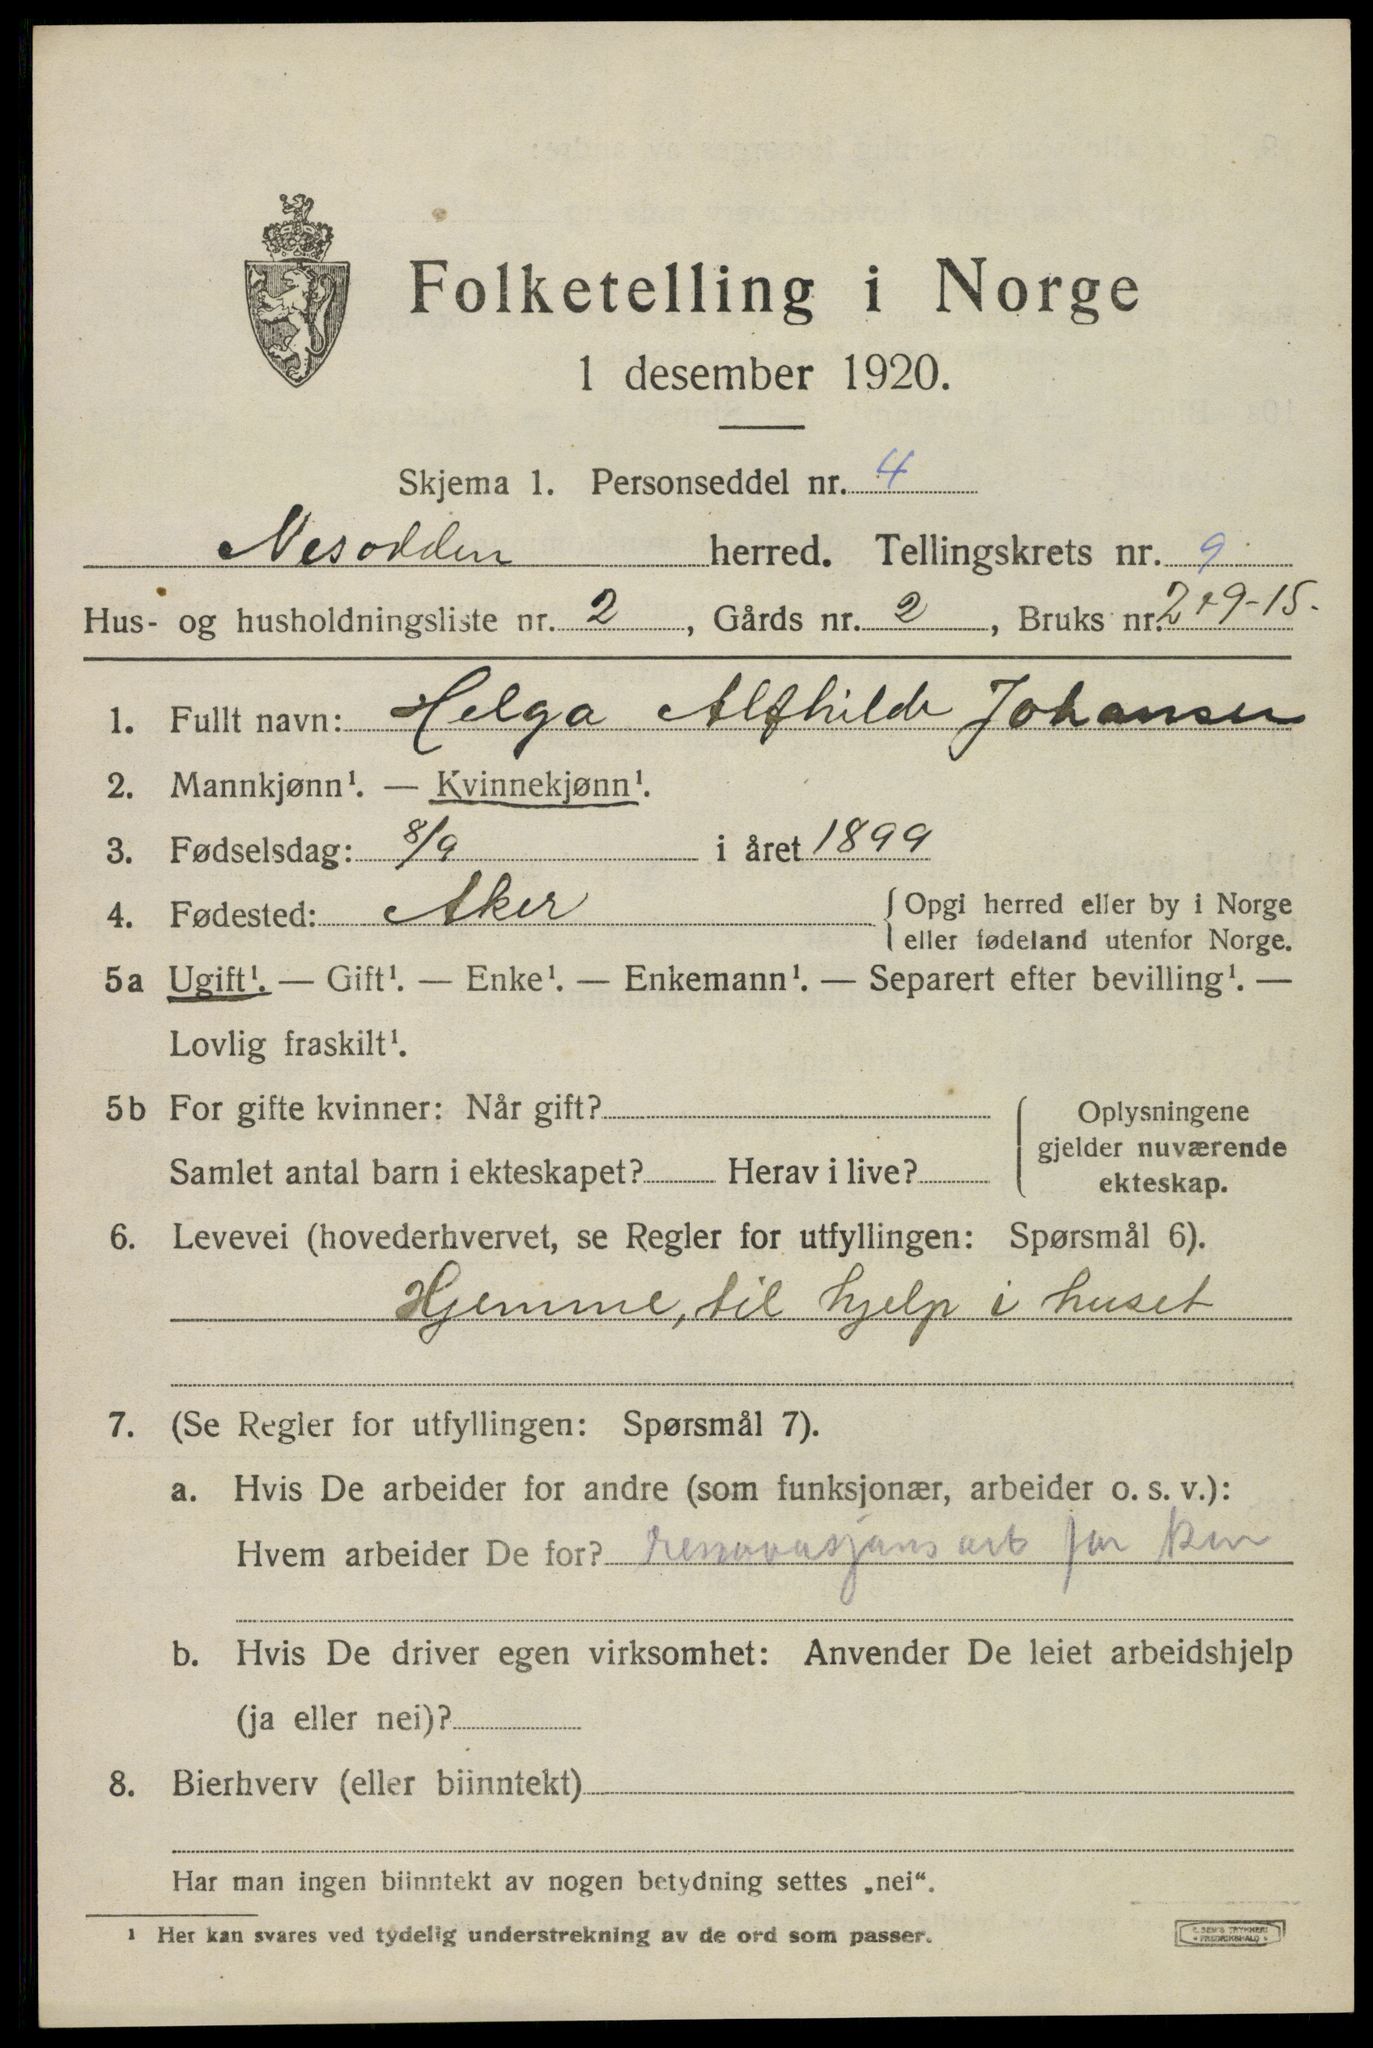 Folketelling i Norge
1 desember 1920.
Skjema 1. Personseddel nr. 4
Nesodden herred. Tellingskrets nr. 9
Hus- og husholdningsliste nr. 2, Gårds nr. 2, Bruks nr. 2+9-15-
1. Fullt navn: Helga Alfhilde Johansen
2. Mannkjønn¹. — Kvinnekjønn¹.
3. Fødselsdag: 8/9 i året 1899
4. Fødested: Aker { Opgi herred eller by i Norge
eller fødeland utenfor Norge.
5a Ugift¹. — Gift¹. — Enke¹. — Enkemann¹. — Separert efter bevilling¹. —
Lovlig fraskilt¹.
5b For gifte kvinner: Når gift?
Samlet antal barn i ekteskapet? Herav i live?
Oplysningene
gjelder nuværende
ekteskap.
6. Levevei (hovederhvervet, se Regler for utfyllingen: Spørsmål 6).
Hjemme, til hjelp i huset
7. (Se Regler for utfyllingen: Spørsmål 7).
a. Hvis De arbeider for andre (som funksjonær, arbeider o. s. v.):
Hvem arbeider De for? renovasjons arb for
b. Hvis De driver egen virksomhet: Anvender De leiet arbeidshjelp
(ja eller nei)?
8. Bierhverv (eller biinntekt)
Har man ingen biinntekt av nogen betydning settes „nei“.
¹ Her kan svares ved tydelig understrekning av de ord som passer.
E. SEM'S TRYKKERI
FREDRIKSHALD